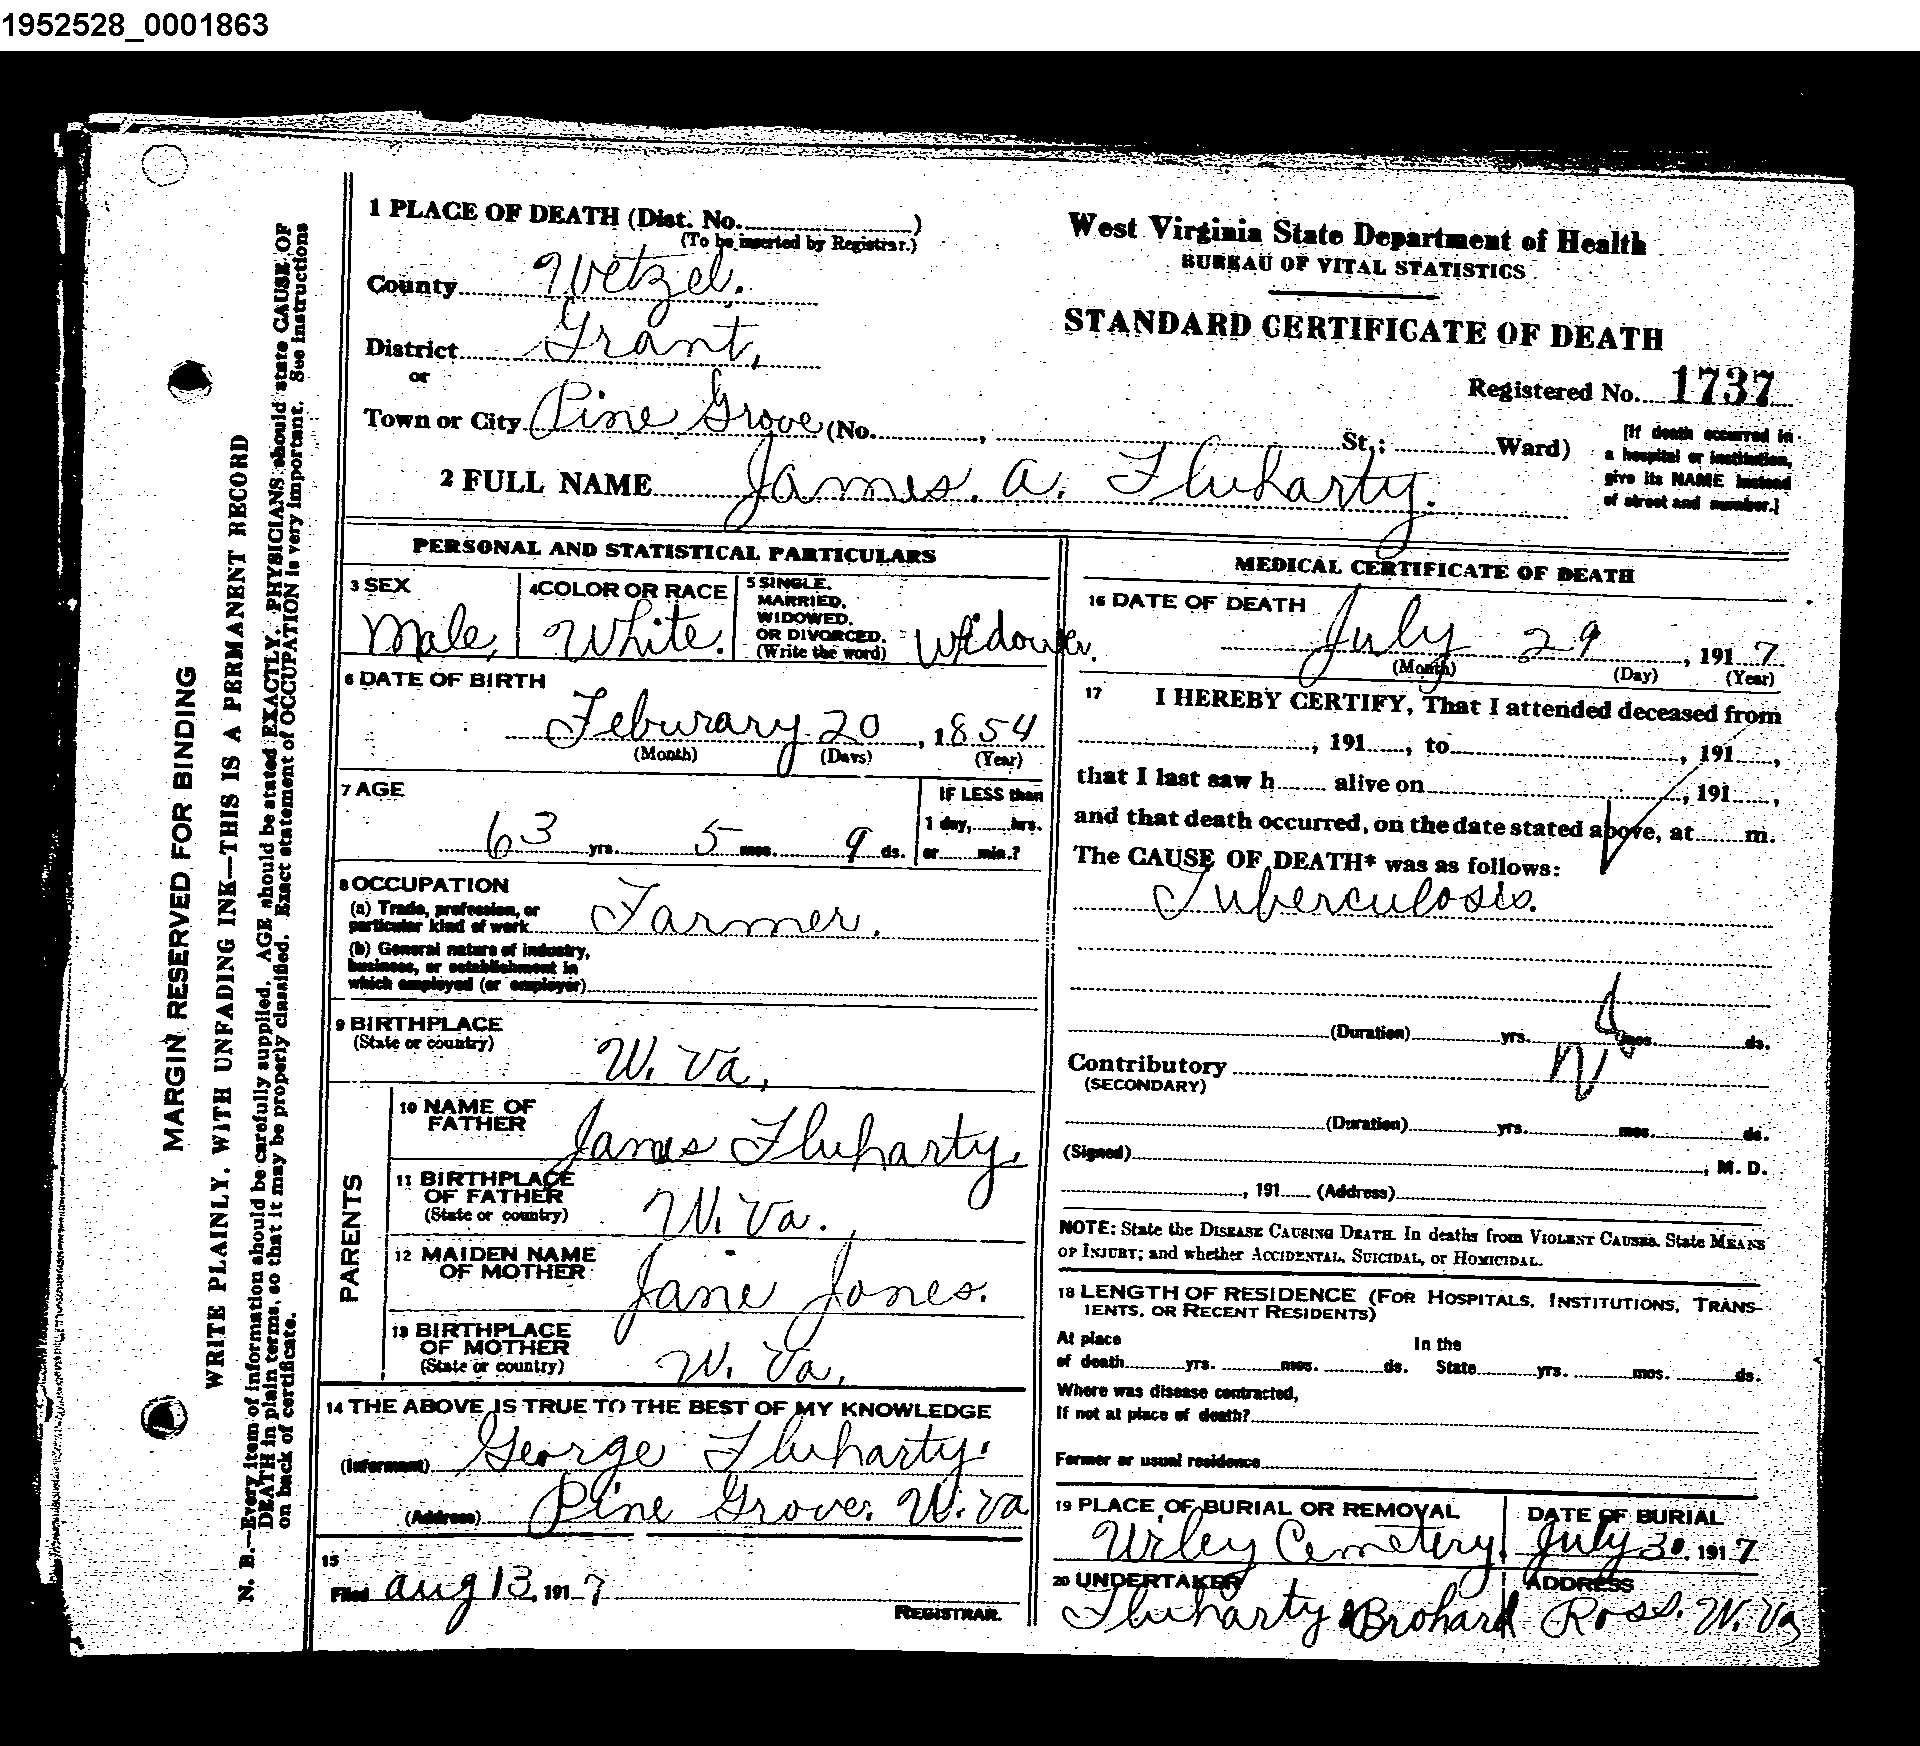 1952528_0001863
MARGIN RESERVED FOR BINDING
WRITE PLAINLY, WITH UNFADING INK—THIS IS A PERMANENT RECORD
N. B.—Every item of information should be carefully supplied. AGE should be stated EXACTLY. PHYSICIANS should state CAUSE OF
DEATH in plain terms, so that it may be properly classified. Exact statement of OCCUPATION is very important. See instructions
on back of certificate.
1 PLACE OF DEATH (Dist. No. )
(To be inserted by Registrar.)
County Wetzel.
District Grant,
or
Town or City Pine Grove (No. , St.; Ward)
West Virginia State Department of Health
BUREAU OF VITAL STATISTICS
STANDARD CERTIFICATE OF DEATH
Registered No. 1737
[If death occurred in
a hospital or institution,
give its NAME instead
of street and number.]
2 FULL NAME James. A. Fluharty.
PERSONAL AND STATISTICAL PARTICULARS
3 SEX
Male,
4 COLOR OR RACE
White.
5 SINGLE,
MARRIED,
WIDOWED,
OR DIVORCED.
(Write the word)
Widower.
6 DATE OF BIRTH
Feburary 20, 1854
(Month) (Days) (Year)
7 AGE
63 yrs. 5 mos. 9 ds.
IF LESS than
1 day, hrs.
or min.?
8 OCCUPATION
(a) Trade, profession, or
particular kind of work Farmer.
(b) General nature of industry,
business, or establishment in
which employed (or employer)
9 BIRTHPLACE
(State or country)
W. Va,
PARENTS
10 NAME OF
FATHER
James Fluharty.
11 BIRTHPLACE
OF FATHER
(State or country)
W. Va.
12 MAIDEN NAME
OF MOTHER
Jane Jones.
13 BIRTHPLACE
OF MOTHER
(State or country)
W. Va.
14 THE ABOVE IS TRUE TO THE BEST OF MY KNOWLEDGE
(Informant) George Fluharty.
(Address) Pine Grove. W. Va
15
Filed Aug 13, 1917
REGISTRAR.
MEDICAL CERTIFICATE OF DEATH
16 DATE OF DEATH
July 29, 1917
(Month) (Day) (Year)
17 I HEREBY CERTIFY, That I attended deceased from
, 191 , to , 191 ,
that I last saw h alive on , 191 ,
and that death occurred, on the date stated above, at m.
The CAUSE OF DEATH* was as follows:
Tuberculosis.
(Duration) yrs. mos. ds.
Contributory
(SECONDARY)
(Duration) yrs. mos. ds.
(Signed) , M. D.
, 191 (Address)
NOTE: State the DISEASE CAUSING DEATH. In deaths from VIOLENT CAUSES, State MEANS
OF INJURY; and whether ACCIDENTAL, SUICIDAL, or HOMICIDAL.
18 LENGTH OF RESIDENCE (FOR HOSPITALS, INSTITUTIONS, TRANS-
IENTS, OR RECENT RESIDENTS)
At place In the
of death yrs. mos. ds. State yrs. mos. ds.
Where was disease contracted,
If not at place of death?
Former or usual residence
19 PLACE OF BURIAL OR REMOVAL
Urley Cemetery.
DATE OF BURIAL
July 30, 1917
20 UNDERTAKER
Fluharty & Brohard
ADDRESS
Ross. W. Va